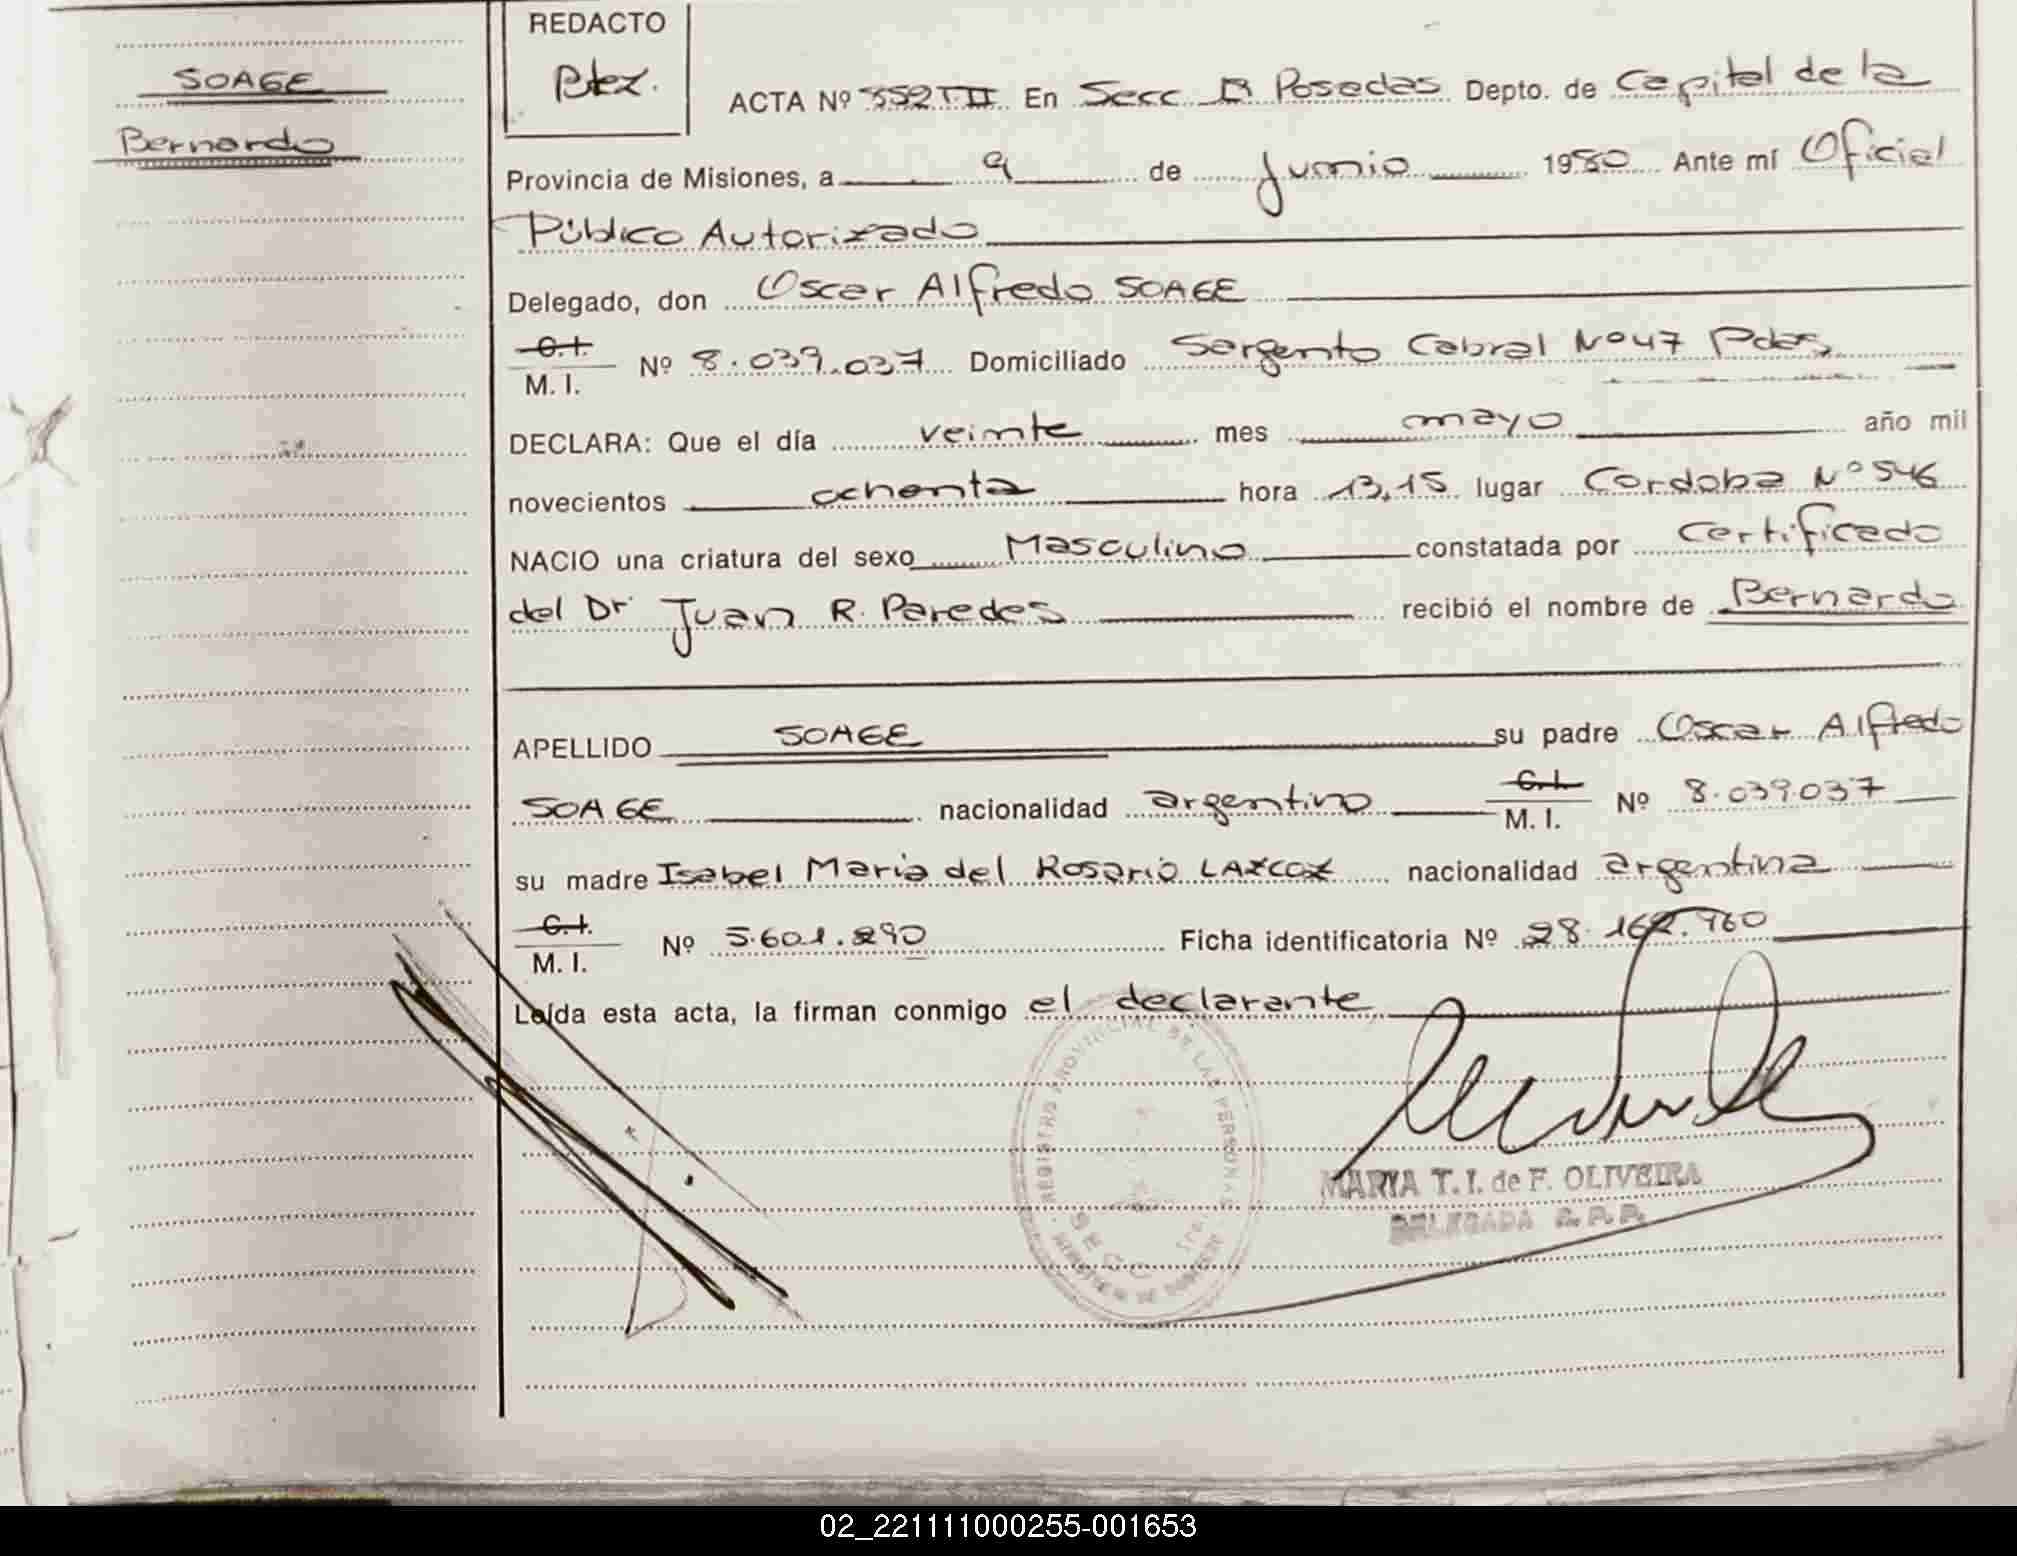 REDACTO
SOAGE
Btez.
ACTA Nº 552 T II En Secc B Posadas Depto. de Capital de la
Bernardo
Provincia de Misiones, a 9 de Junio 1980 Ante mí Oficial
Público Autorizado
Delegado, don Oscar Alfredo SOAGE
C.I.
M. I. Nº 8.039.037 Domiciliado Sargento Cabral Nº 47 Pdas
DECLARA: Que el día veinte mes mayo año mil
novecientos ochenta hora 13,15 lugar Cordoba Nº 546
NACIO una criatura del sexo Masculino constatada por Certificado
del Dr Juan R. Paredes recibió el nombre de Bernardo
APELLIDO SOAGE su padre Oscar Alfredo
SOAGE nacionalidad argentino C.I. M. I. Nº 8.039.037
su madre Isabel Maria del Rosario LAZCOZ nacionalidad argentina
C.I.
M. I. Nº 5.601.290 Ficha identificatoria Nº 28.162.960
Leída esta acta, la firman conmigo el declarante
REGISTRO PROVINCIAL DE LAS PERSONAS
SECC
MARIA T. I. de F. OLIVEIRA
DELEGADA R. P. P.
02_221111000255-001653